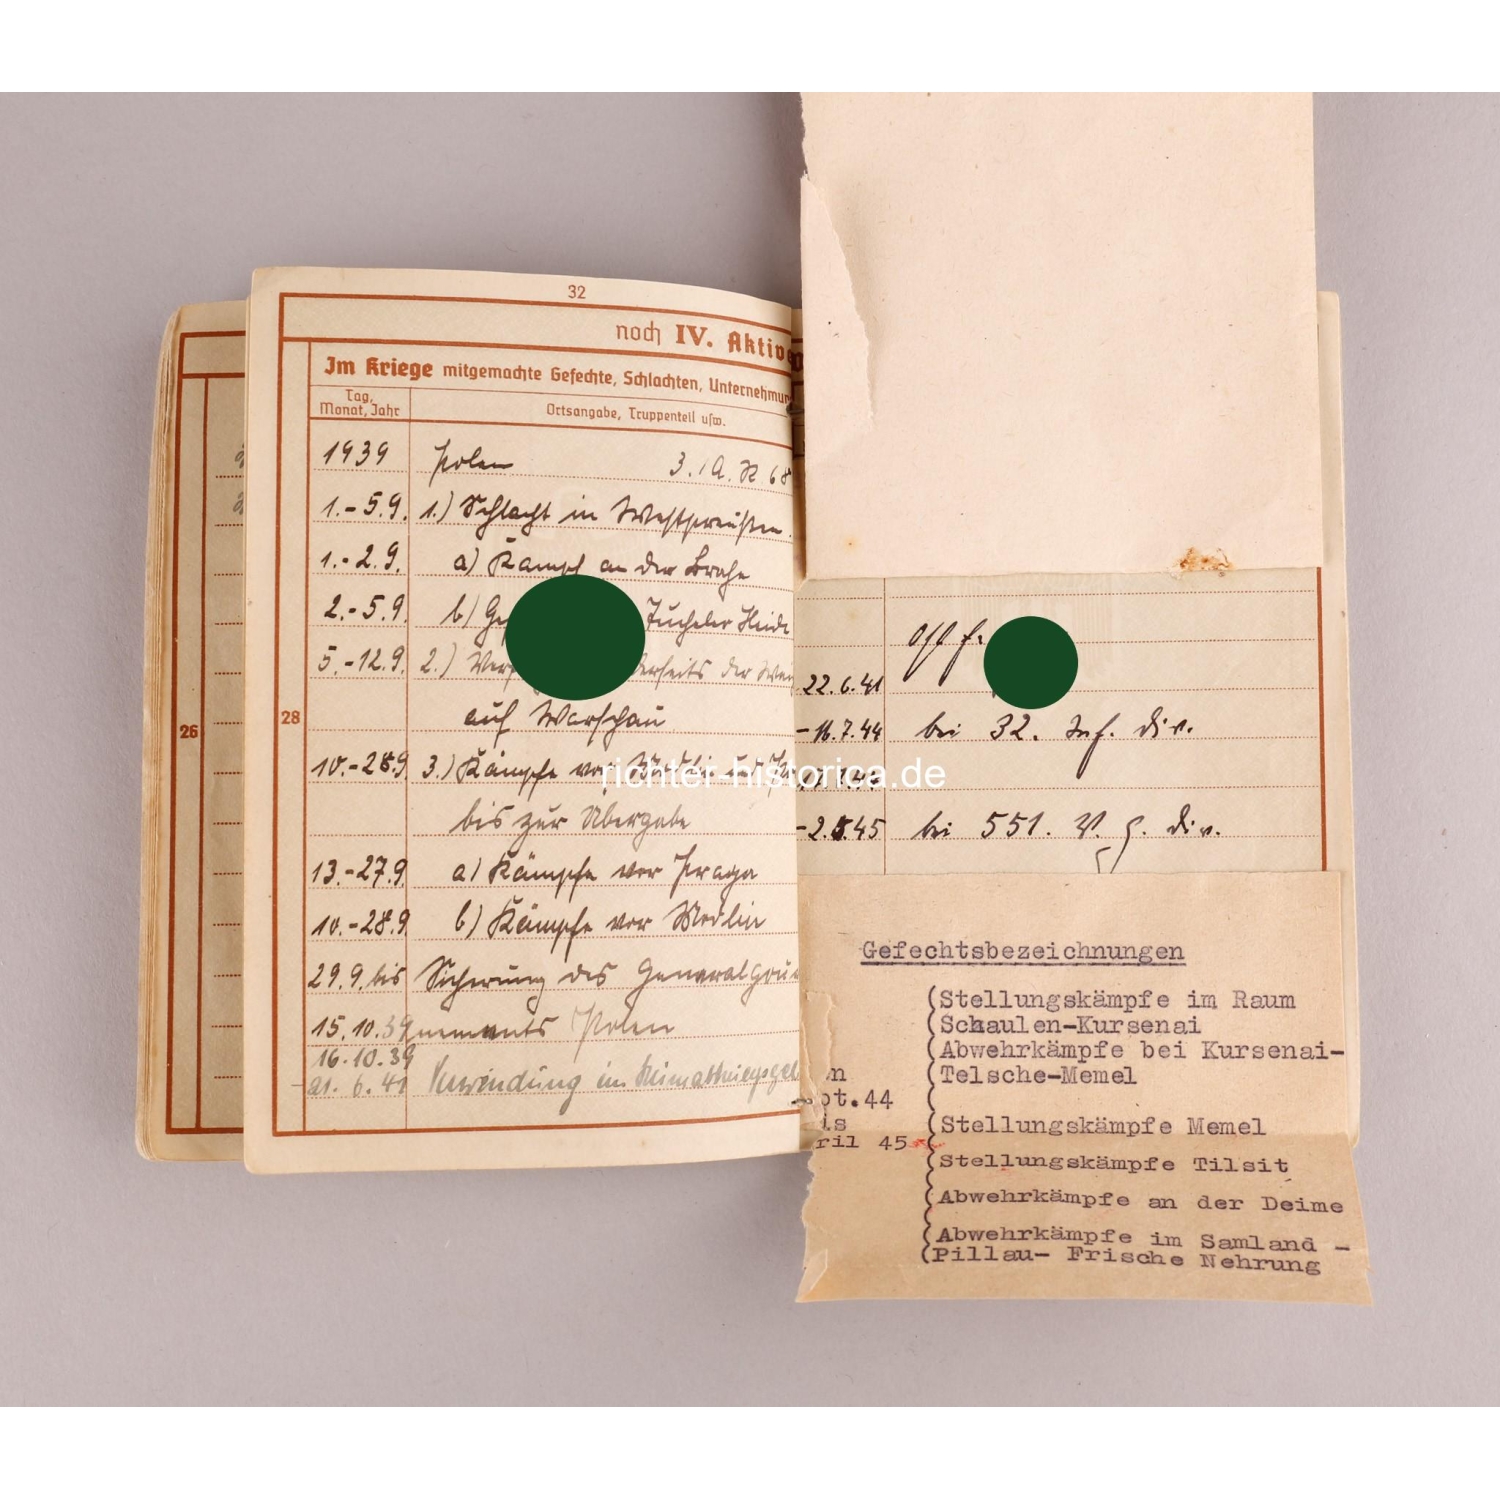 32
noch IV. Aktive
Im Kriege mitgemachte Gefechte, Schlachten, Unternehmun
Tag, Monat, Jahr
Ortsangabe, Truppenteil usw.
1939 Polen 3./A.R 68
1.-5.9. 1.) Schlacht in Westpreußen.
1.-2.9. a) Kampf an der Brahe
2.-5.9. b) Ge Tucheler Heide
5.-12.9. 2.) Ver derseits der
auf Warschau
10.-28.9 3.) Kämpfe vor
bis zur Übergabe
13.-27.9 a) Kämpfe vor Praga
10.-28.9 b) Kämpfe vor Modlin
29.9. bis Sicherung des Generalgou
15.10.39 nements Polen
16.10.39
-21.6.41 Verwendung im Heimatkriegsgeb
28
26
22.6.41
-16.7.44 bei 32. Inf. Div.
-2.5.45 bei 551. V. G. Div.
richter-historica.de
Gefechtsbezeichnungen
(Stellungskämpfe im Raum
(Schaulen-Kursenai
(Abwehrkämpfe bei Kursenai-
(Telsche-Memel
pt.44
is
ril 45
(Stellungskämpfe Memel
(Stellungskämpfe Tilsit
(Abwehrkämpfe an der Deime
(Abwehrkämpfe im Samland -
(Pillau- Frische Nehrung